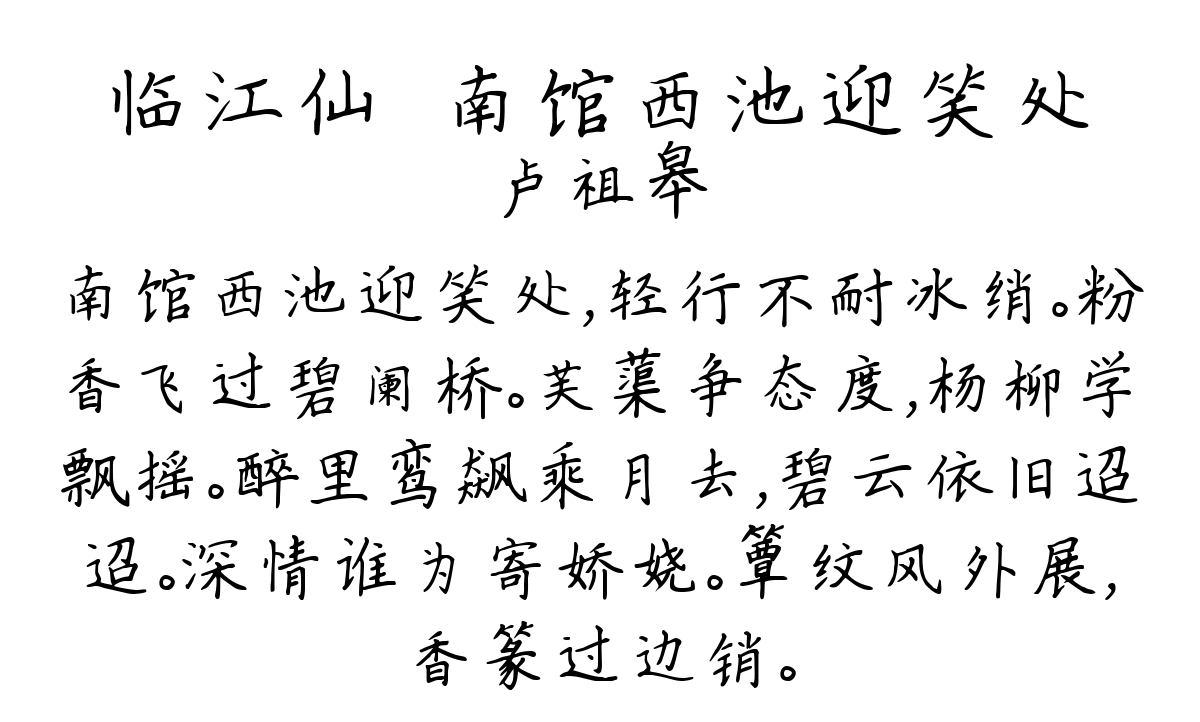 临江仙 南馆西池迎笑处
卢祖皋
南馆西池迎笑处,轻行不耐冰绡。粉
香飞过碧阑桥。芙蕖争态度,杨柳学
飘摇。醉里鸾飙乘月去,碧云依旧迢
迢。深情谁为寄娇娆。簟纹风外展,
香篆过边销。